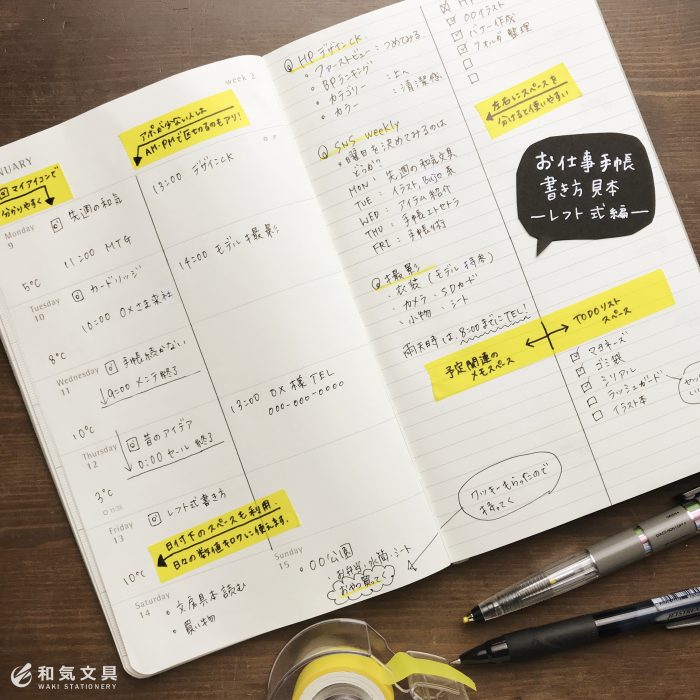 week 2
JANUARY
アポが少ない人は
AM・PMで区切るのもアリ!
マイアイコンで
分かりやすく
Monday
9
5°C
先週の和気
11:00 MTG
13:00 デザインCK
14:00 モデル撮影
Tuesday
10
8°C
カードリッジ
10:00 〇×さま来社
Wednesday
11
10°C
手帳が続かない
9:00 メンテ終了
13:00 〇×様 TEL
000-000-0000
Thursday
12
3°C
昔のアイデア
0:00 セール終了
Friday
13
10°C
レフト式書き方
日付下のスペースも利用
日々の数値キロクに使えます.
Saturday
14
・文房具本読む
・買い物
Sunday
15
・〇〇公園
・お弁当・水筒・シート
おやつ買ってく
Q HP デザインCK
・ファーストビュー:つめてみる
・BPランキング
・カテゴリー:上へ
・カラー:清潔感
Q SNS weekly
・曜日を決めてみるのは
どうか?
MON:先週の和気文具
TUE:イラスト, Bujo系
WED:アイテム紹介
THU:手帳エトセトラ
FRI:手帳術
Q 撮影
・衣装(モデル持参)
・カメラ・SDカード
・小物・シート
雨天時は、8:00までにTEL!
予定関連の
メモスペース
TODOリスト
スペース
クッキーもらったので
持ってく
〇〇イラスト
バナー作成
フォルダ整理
左右にスペースを
分けると使いやすい
お仕事手帳
書き方見本
ーレフト式編ー
マヨネーズ
ゴミ袋
シリアル
ラッシュガード
イラスト本
和気文具
WAKI STATIONERY